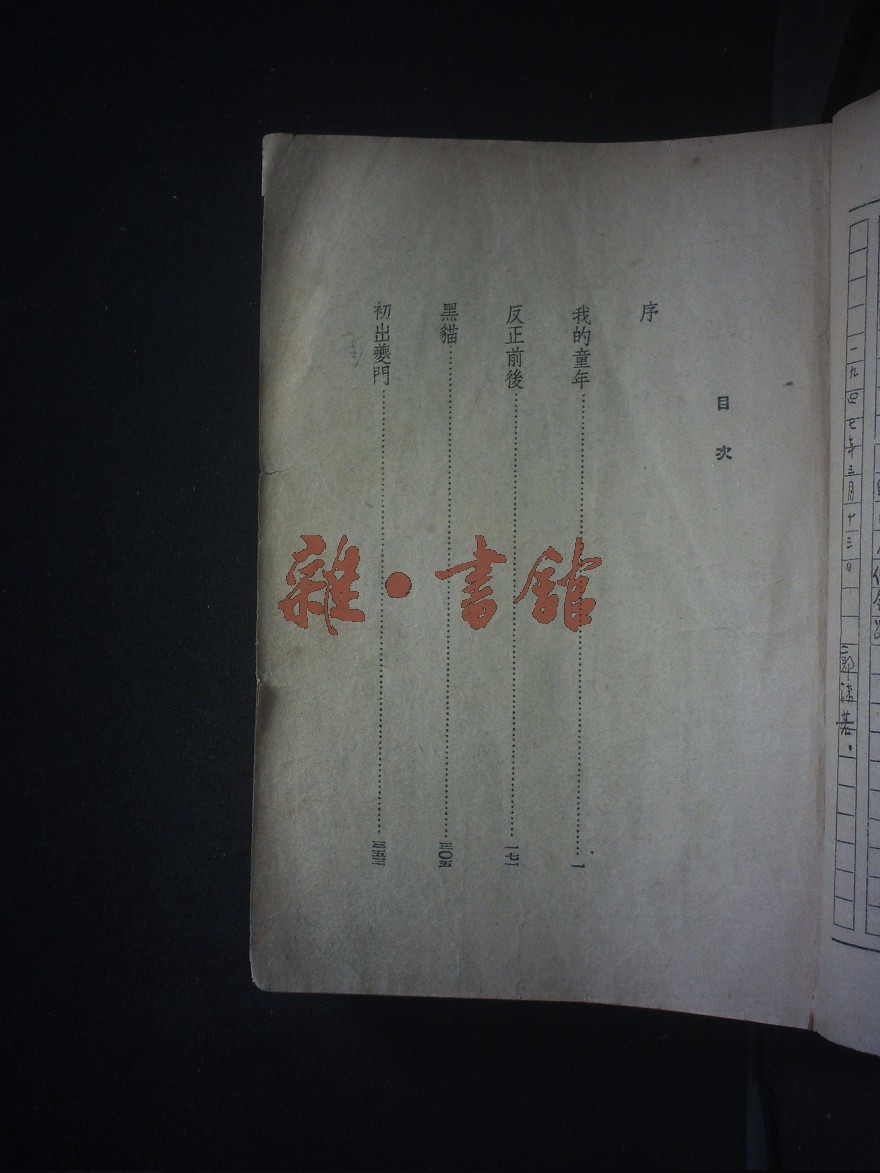 一九四七年三月十三日 郭沫若。
目次
序
我的童年……一
反正前後……一七一
黑貓……三〇五
初出夔門……三五三
雜·書館